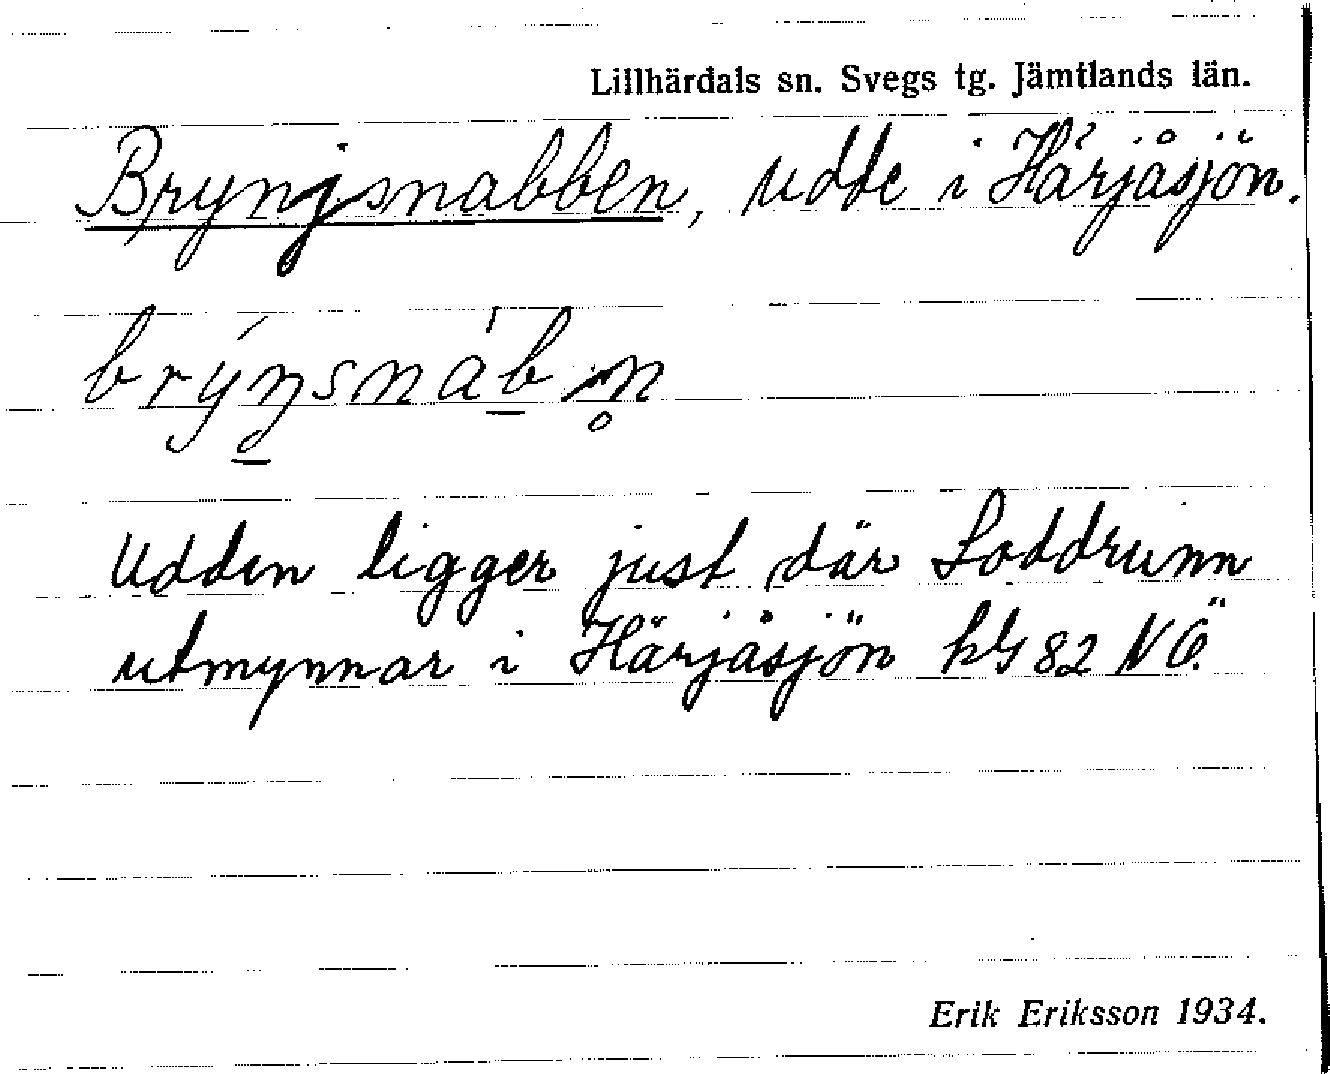 Lillhärdals sn. Svegs tg. Jämtlands län.
Bryngsnabben, udde i Härjåsjön.
brýŋsnàb̲n̥
Udden ligger just där Loddrunn
utmynnar i Härjåsjön kbl 82 NÖ.
Erik Eriksson 1934.